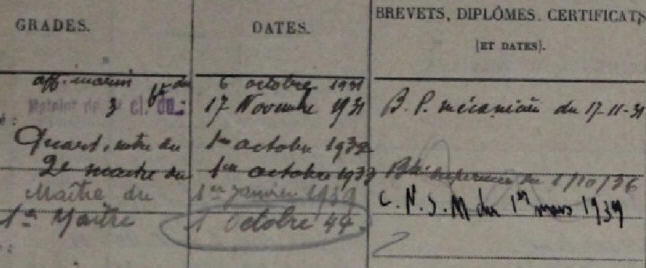 GRADES.
DATES.
BREVETS, DIPLÔMES, CERTIFICATS
(ET DATES).
app. marin 6 octobre 1931
Matelot de 3 cl. du: 17 Novembre 1931 B. P. mécanicien du 17-11-31
Quart. mtre du 1er octobre 1932
2e maître du 1er octobre 1933 Bt supérieur du 1/10/36
Maître du 1er janvier 1939 C. N. S. M du 1er mars 1939
1er Maître 1 octobre 44